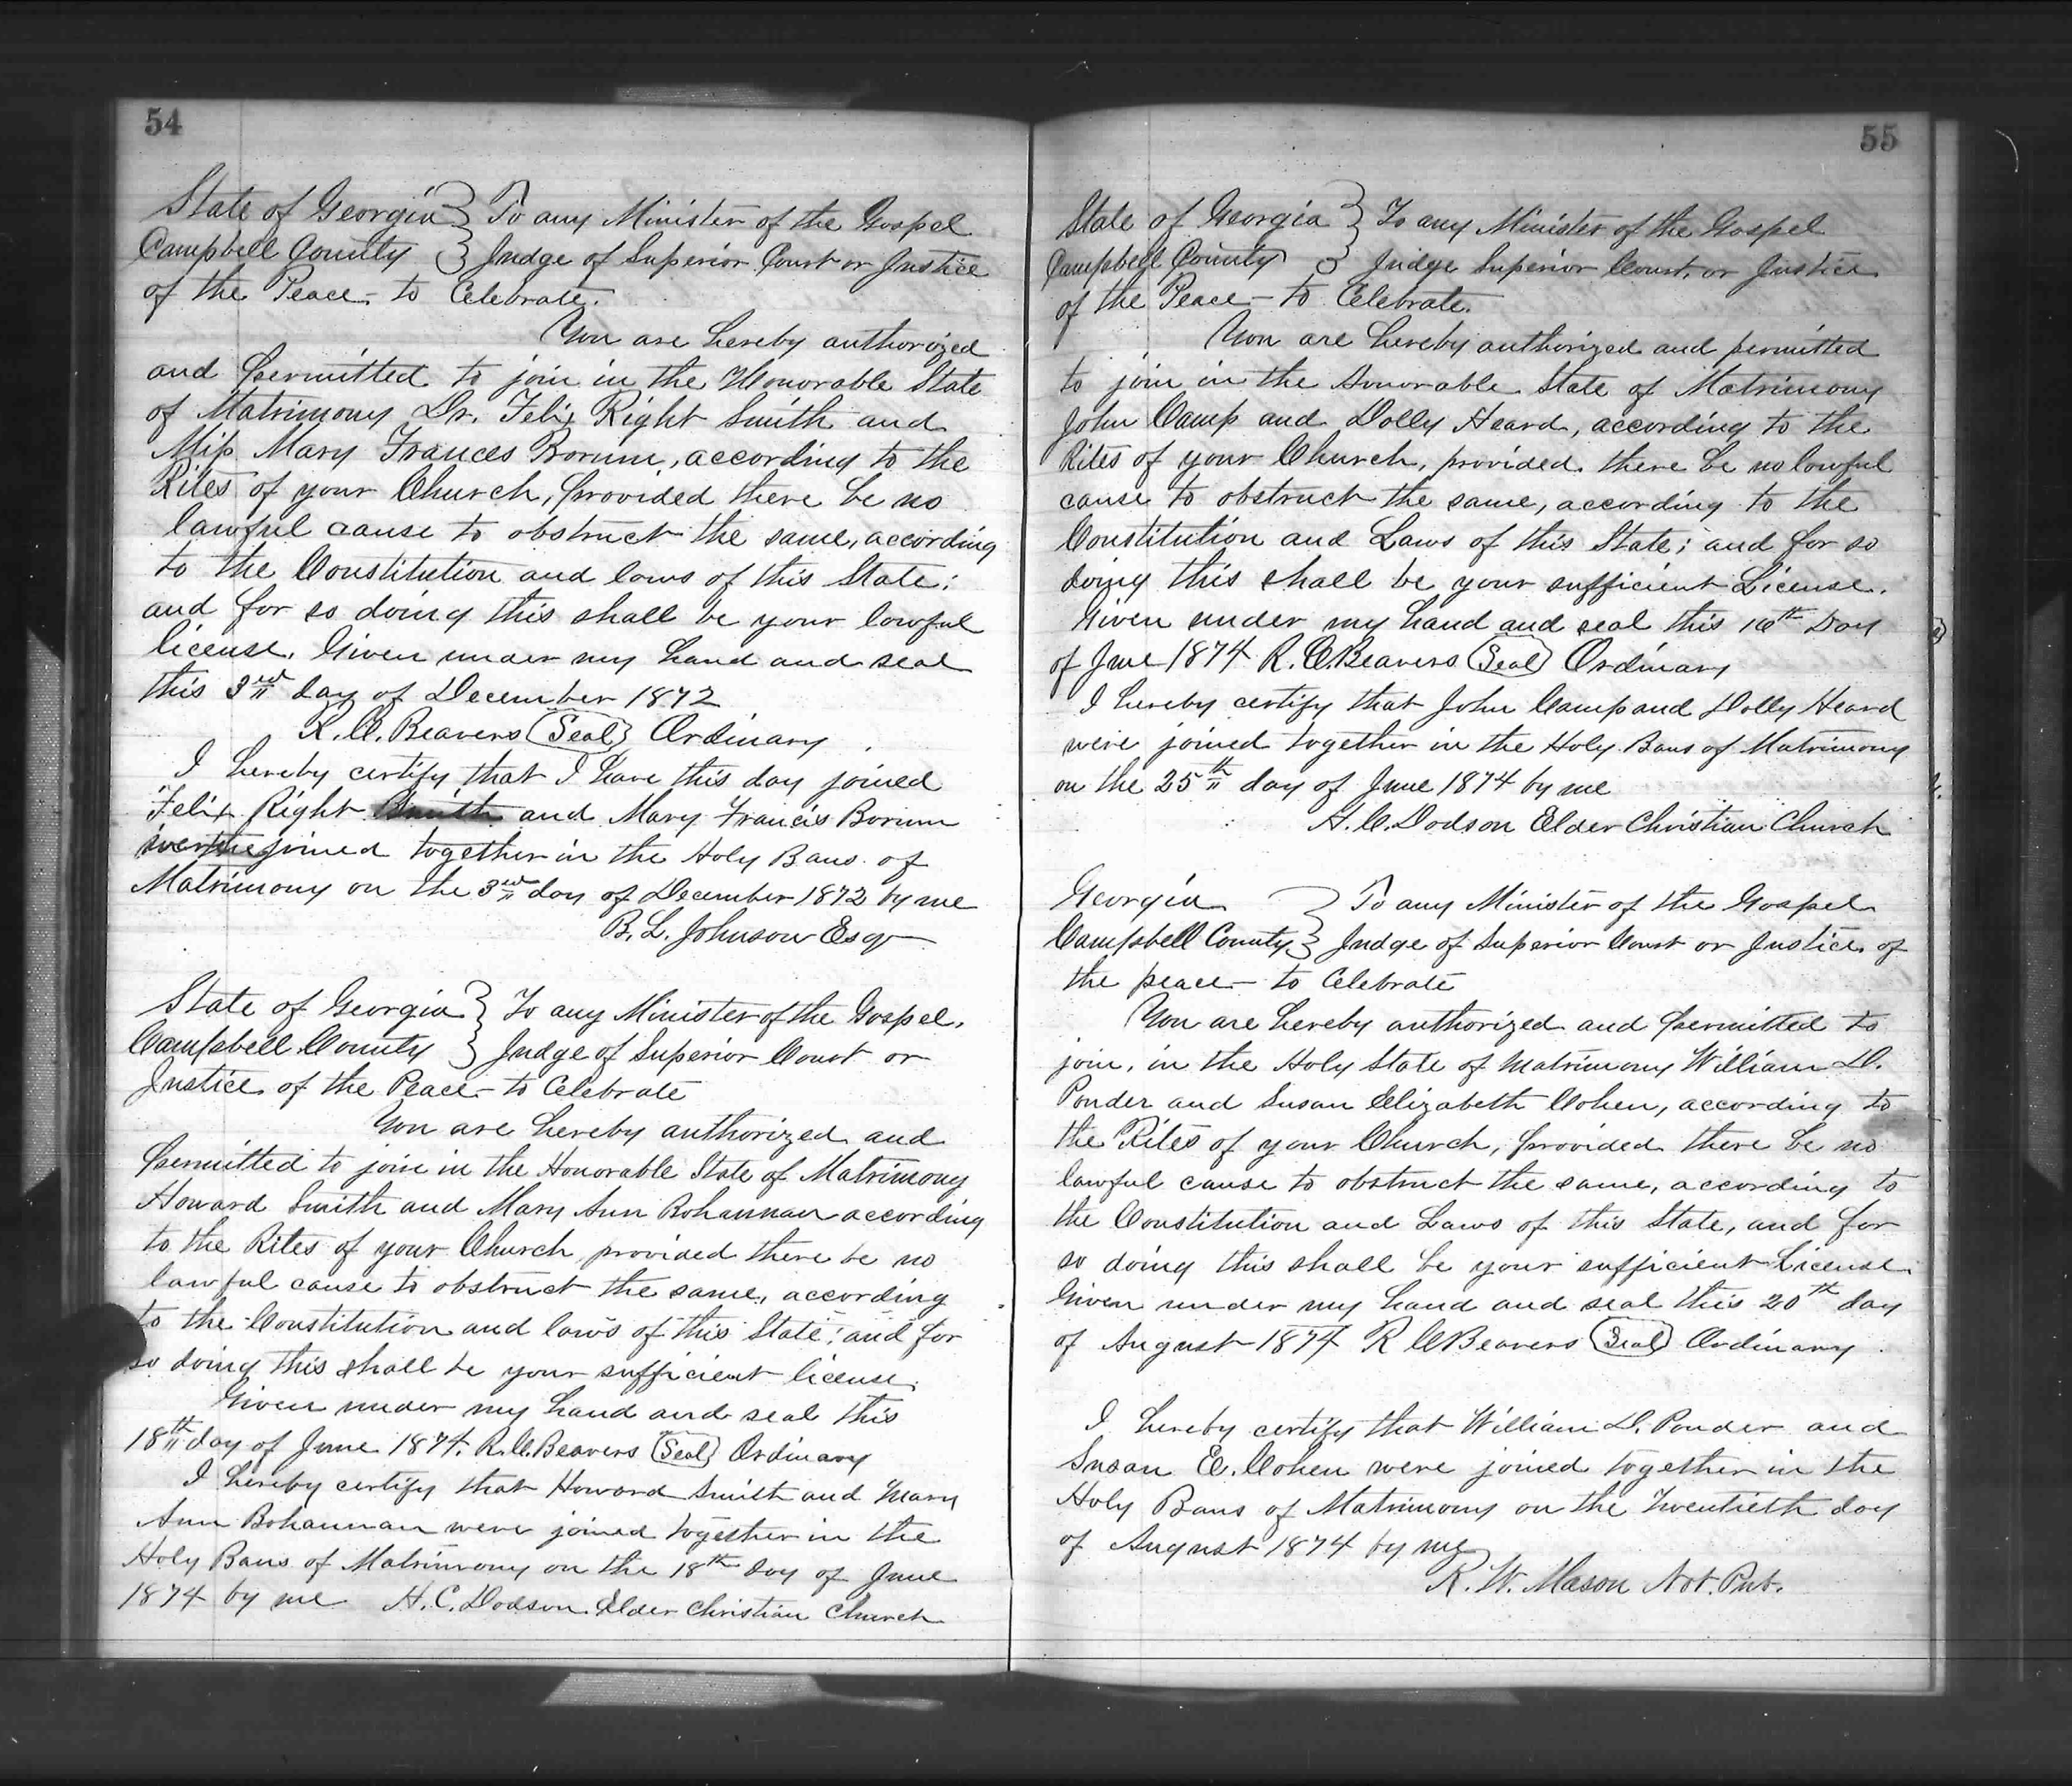 54
State of Georgia } To any Minister of the Gospel
Campbell County } Judge of Superior Court or Justice
of the Peace - to Celebrate.
You are hereby authorized
and permitted to join in the Honorable State
of Matrimony Dr. Felix Right Smith and
Miss Mary Frances Borum, according to the
Rites of your Church, provided there be no
lawful cause to obstruct the same, according
to the Constitution and laws of this State;
and for so doing this shall be your lawful
license. Given under my hand and seal
this 3rd day of December 1872
R. C. Beavers (Seal) Ordinary
I hereby certify that I have this day joined
Felix Right Smith and Mary Francis Borum
were joined together in the Holy Bans of
Matrimony on the 3rd day of December 1872 by me
B. L. Johnson Esqr
State of Georgia } To any Minister of the Gospel,
Campbell County } Judge of Superior Court or
Justice of the Peace - to Celebrate
You are hereby authorized and
permitted to join in the Honorable State of Matrimony
Howard Smith and Mary Ann Bohannan according
to the Rites of your Church provided there be no
lawful cause to obstruct the same, according
to the Constitution and laws of this State; and for
so doing this shall be your sufficient license.
Given under my hand and seal this
18th day of June 1874. R. C. Beavers (Seal) Ordinary
I hereby certify that Howard Smith and Mary
Ann Bohannan were joined together in the
Holy Bans of Matrimony on the 18th Day of June
1874 by me H. C. Dodson Elder Christian Church
55
State of Georgia } To any Minister of the Gospel
Campbell County } Judge Superior Court, or Justice
of the Peace - to Celebrate.
You are hereby authorized and permitted
to join in the Honorable State of Matrimony
John Camp and Dolly Heard, according to the
Rites of your Church, provided there be no lawful
cause to obstruct the same, according to the
Constitution and Laws of this State; and for so
doing this shall be your sufficient License.
Given under my hand and seal this Day
of June 1874 R. C. Beavers (Seal) Ordinary
I hereby certify that John Camp and Dolly Heard
were joined together in the Holy Bans of Matrimony
on the 25th day of June 1874 by me
H. C. Dodson Elder Christian Church
Georgia } To any Minister of the Gospel
Campbell County } Judge of Superior Court or Justice of
the peace - to Celebrate
You are hereby authorized and permitted to
join, in the Holy State of Matrimony William D.
Ponder and Susan Elizabeth Cohen, according to
the Rites of your Church, provided there be no
lawful cause to obstruct the same, according to
the Constitution and Laws of this State, and for
so doing this shall be your sufficient License.
Given under my hand and seal this 20th day
of August 1874 R C Beavers (Seal) Ordinary.
I hereby certify that William D. Ponder and
Susan E. Cohen were joined together in the
Holy Bans of Matrimony on the Twentieth day
of August 1874 by me
R. W. Mason Not. Pub.